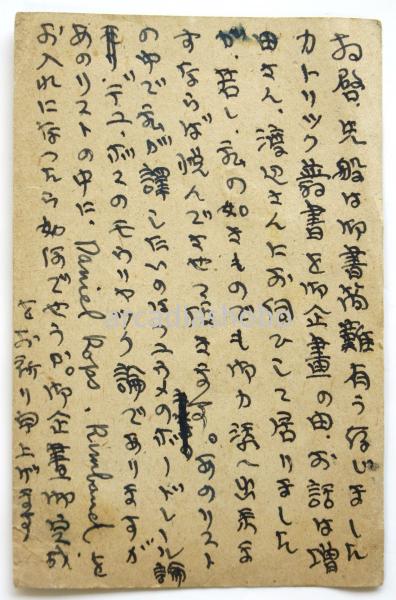 拝啓、先般は御書簡難有う存じました
カトリック叢書を御企畫の由、お話は増
田さん、渡辺さんにお伺ひして居りました
が、若し、私の如きものでも御力添へ出来ま
すならば悦んでさせて きます。あのリスト
の中で私が譯したいのはユウメのボードレール論
デュ・ボスのモウリヤック論でありますが
あのリストの中に、Daniel Rops, Rimbaud を
お入れになつたら如何でせうか。御企畫御完成
をお祈り申上げます